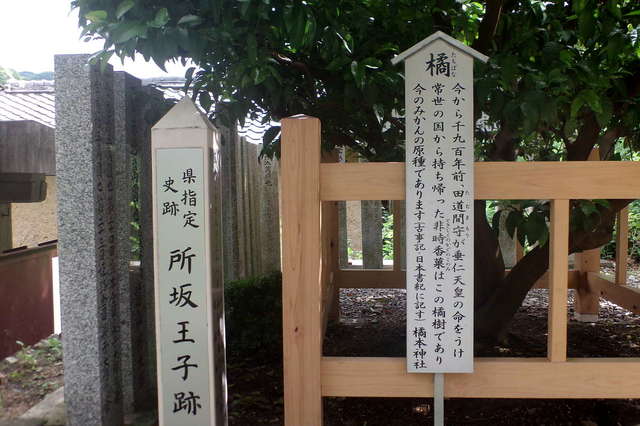 橘
たちばな
今から千九百年前田道間守が垂仁天皇の命をうけ
常世の国から持ち帰った非時香菓はこの橘樹であり
今のみかんの原種であります(古事記・日本書紀に記す)橘本神社
県指定
史跡
所坂王子跡